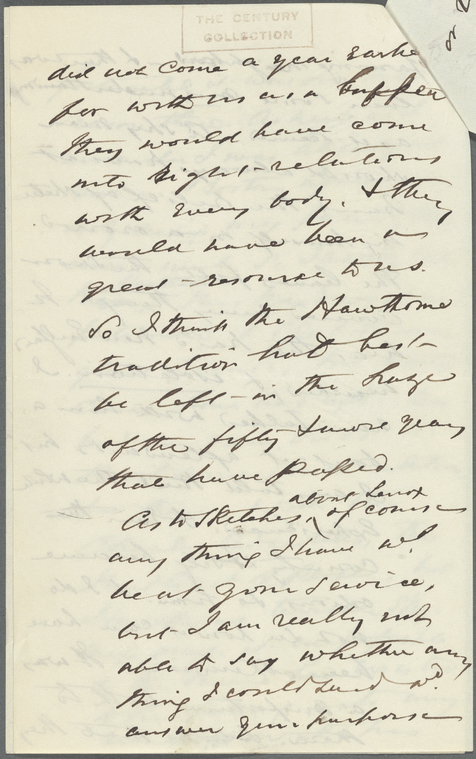 THE CENTURY
COLLECTION
or
did not come a year earlie
for with us as a buffer
they would have come
into right-relations
with every body. & they
would have been a
great-resource to us.
So I think the Hawthorne
tradition had best-
be left-in the haze
of the fifty & more years
that have passed.
about Lenox
As to Sketches, of course
any thing I have wd
be at your service,
but I am really not
able to say whether any
thing I could send wd.
answer your purpose